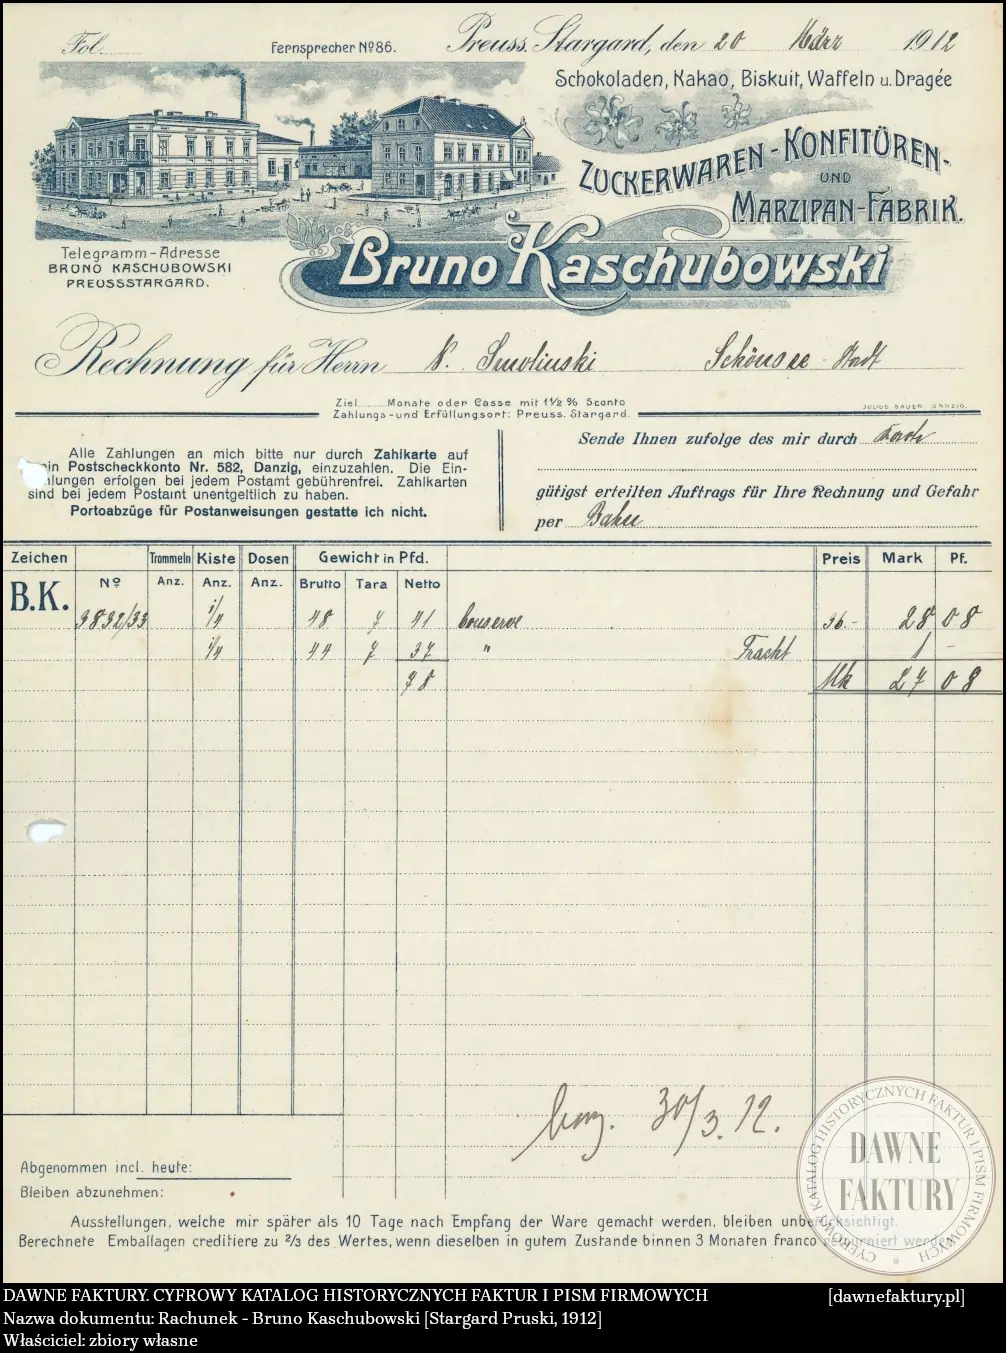 Fol.
Fernsprecher Nº 86.
Preuss. Stargard, den 20 März 1912
Schokoladen, Kakao, Biskuit, Waffeln u. Dragée
ZUCKERWAREN - KONFITÜREN-
UND
MARZIPAN-FABRIK.
Bruno Kaschubowski
Telegramm - Adresse
BRUNO KASCHUBOWSKI
PREUSSSTARGARD.
Rechnung für Herrn N. Smolinski Schönsee Stadt
Ziel Monate oder Casse mit 1½ % Sconto
Zahlungs - und Erfüllungsort: Preuss. Stargard.
JULIUS SAUER DANZIG.
Alle Zahlungen an mich bitte nur durch Zahlkarte auf
ein Postscheckkonto Nr. 582, Danzig, einzuzahlen. Die Ein-
hlungen erfolgen bei jedem Postamt gebührenfrei. Zahlkarten
sind bei jedem Postamt unentgeltlich zu haben.
Portoabzüge für Postanweisungen gestatte ich nicht.
Sende Ihnen zufolge des mir durch
gütigst erteilten Auftrags für Ihre Rechnung und Gefahr
per Bahn
Zeichen Trommeln Kiste Dosen Gewicht in Pfd. Preis Mark Pf.
Nº Anz. Anz. Anz. Brutto Tara Netto
B.K.
3832/33 1/4 48 7 41 Conserve 36.- 28 08
1/4 44 7 37 " Fracht 1 -
78 Mk 27 08
30/3.12.
Abgenommen incl. heute:
Bleiben abzunehmen:
Ausstellungen, welche mir später als 10 Tage nach Empfang der Ware gemacht werden, bleiben unberücksichtigt.
Berechnete Emballagen creditiere zu ⅔ des Wertes, wenn dieselben in gutem Zustande binnen 3 Monaten franco retourniert werden.
DAWNE
FAKTURY
CYFROWY KATALOG HISTORYCZNYCH FAKTUR I PISM FIRMOWYCH
DAWNE FAKTURY. CYFROWY KATALOG HISTORYCZNYCH FAKTUR I PISM FIRMOWYCH [dawnefaktury.pl]
Nazwa dokumentu: Rachunek - Bruno Kaschubowski [Stargard Pruski, 1912]
Właściciel: zbiory własne